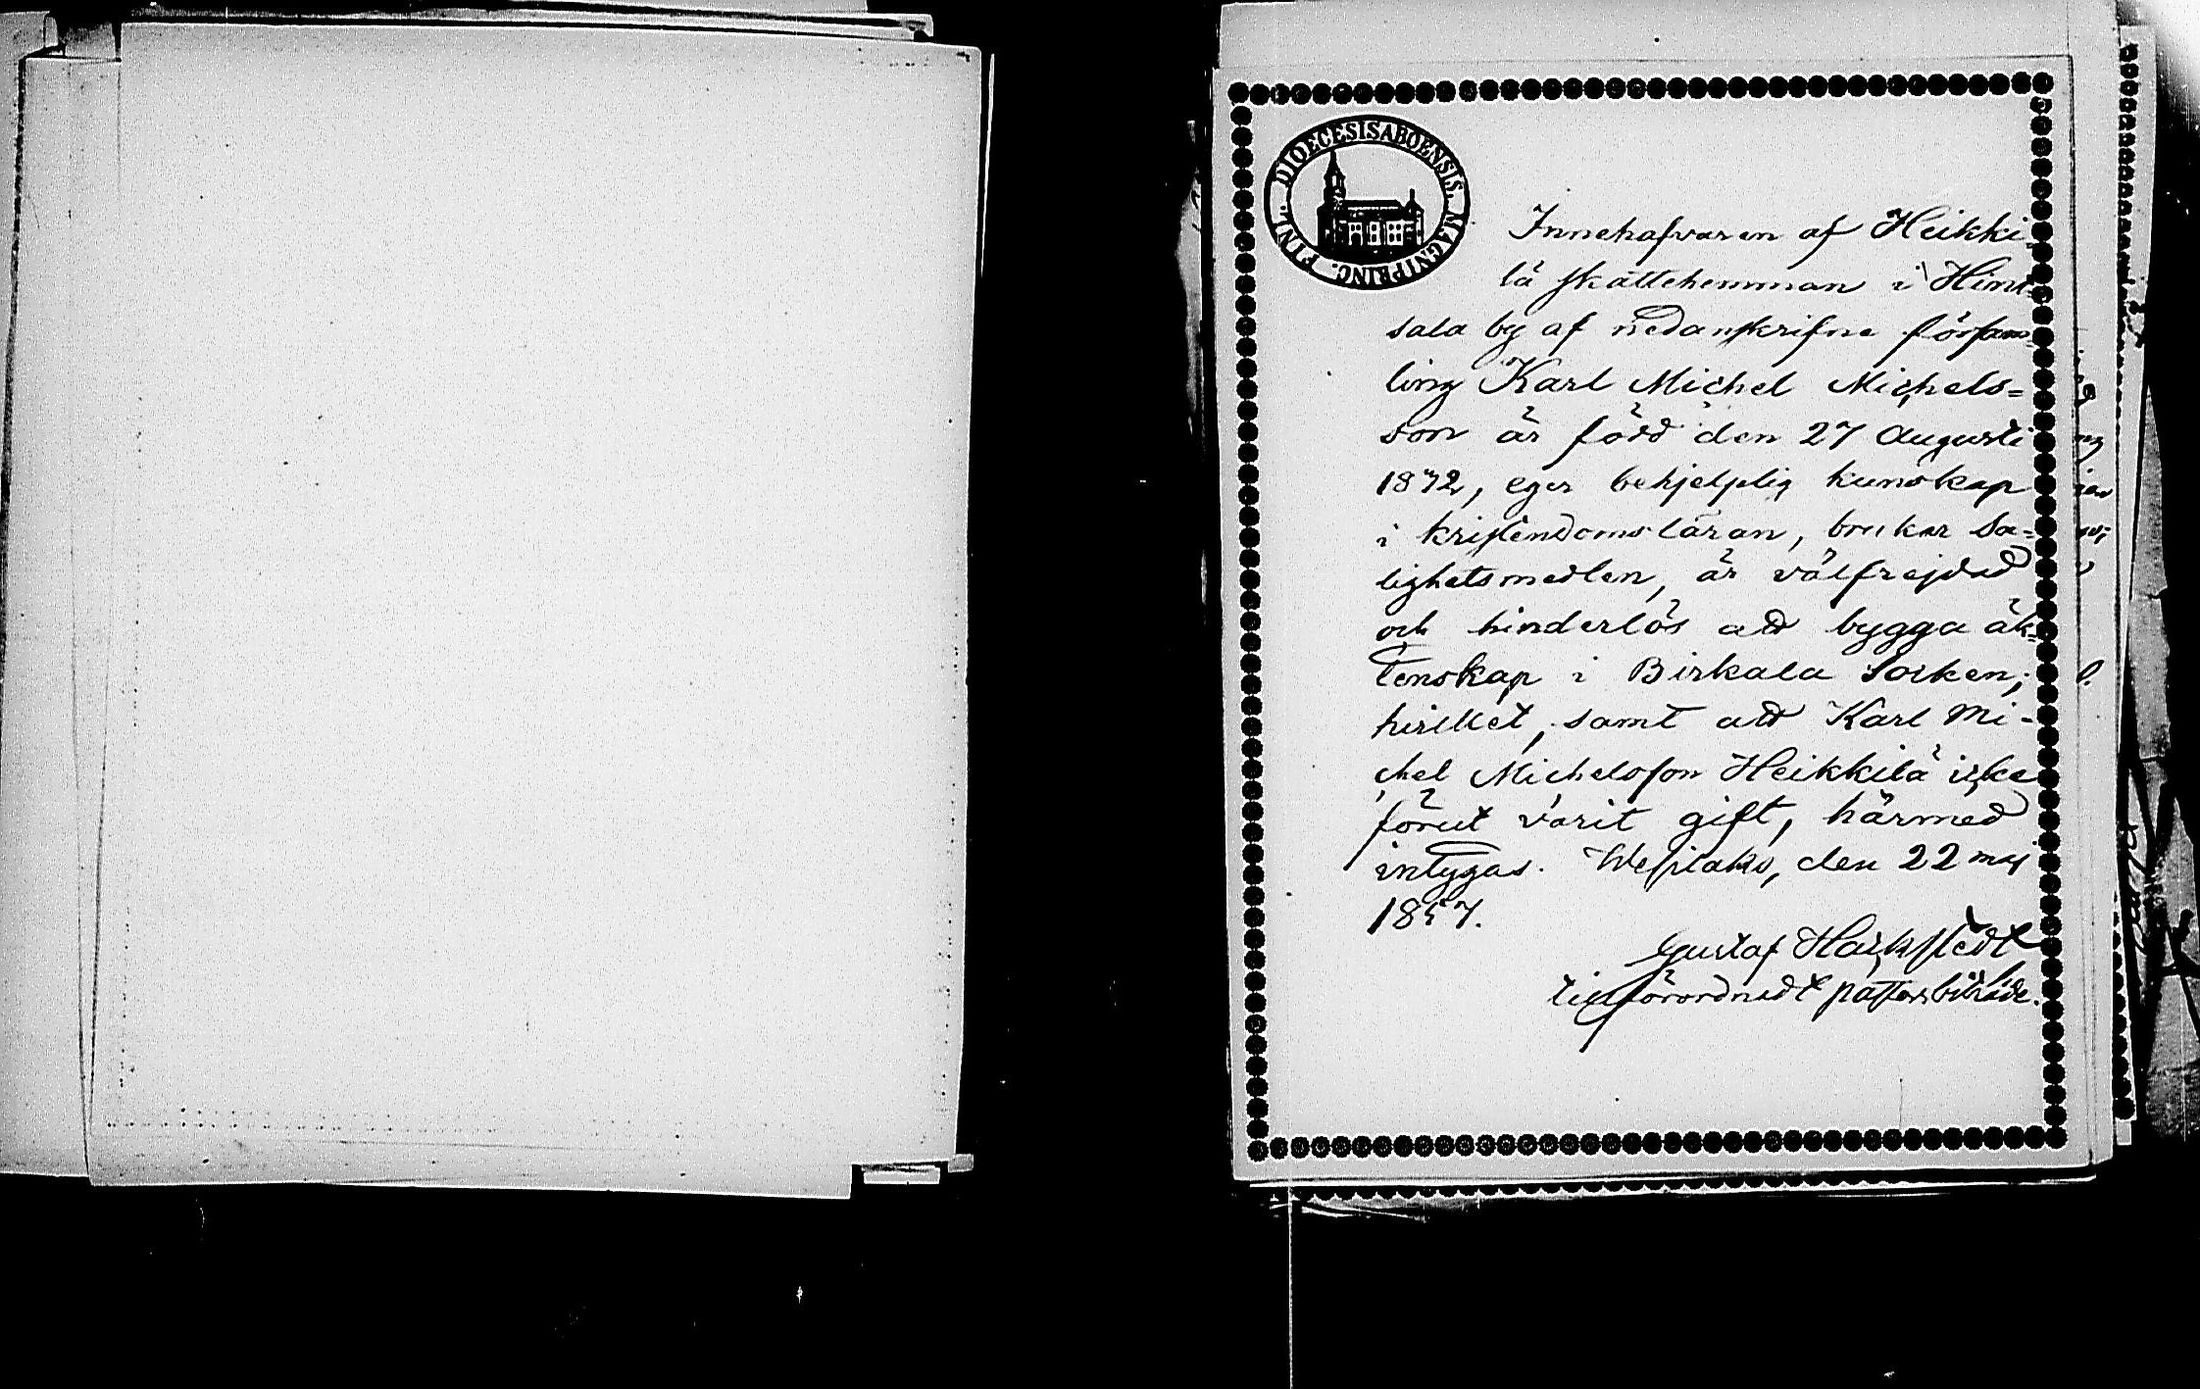 DIOECESIS ABOENSIS. MAGNI PRINC. FINL.
Innehafvaren af Heikki-
lä skattehemman i Himi-
sala by af nedanskrifne försam-
ling Karl Michel Michels-
son är född den 27 Augusti
1872, eger behjelplig kunskap
i kristendomsläran, brukar Sa-
lighetsmedlen, är välfrejdad
och hinderlös att bygga äk-
tenskap i Birkala Socken;
hvilket, samt att Karl Mi-
chel Michelsson Heikkilä icke
förut varit gift, härmed
intygas. Wesilaks, den 22 maj
18
Gustaf
tillförordnadt pastorsbiträde.